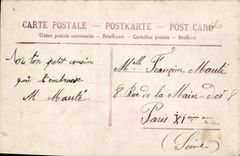 CARTE POSTALE — POSTKARTE — POST CARD
Union postale universelle — Briefkaart — Cartolina postale — Brefkort
Ton petit cousin
qui t'embrasse
M. Mauté
Mlle Françoise Mauté
8 Rue de la Main-d'or 8
Paris XIème
(Seine)